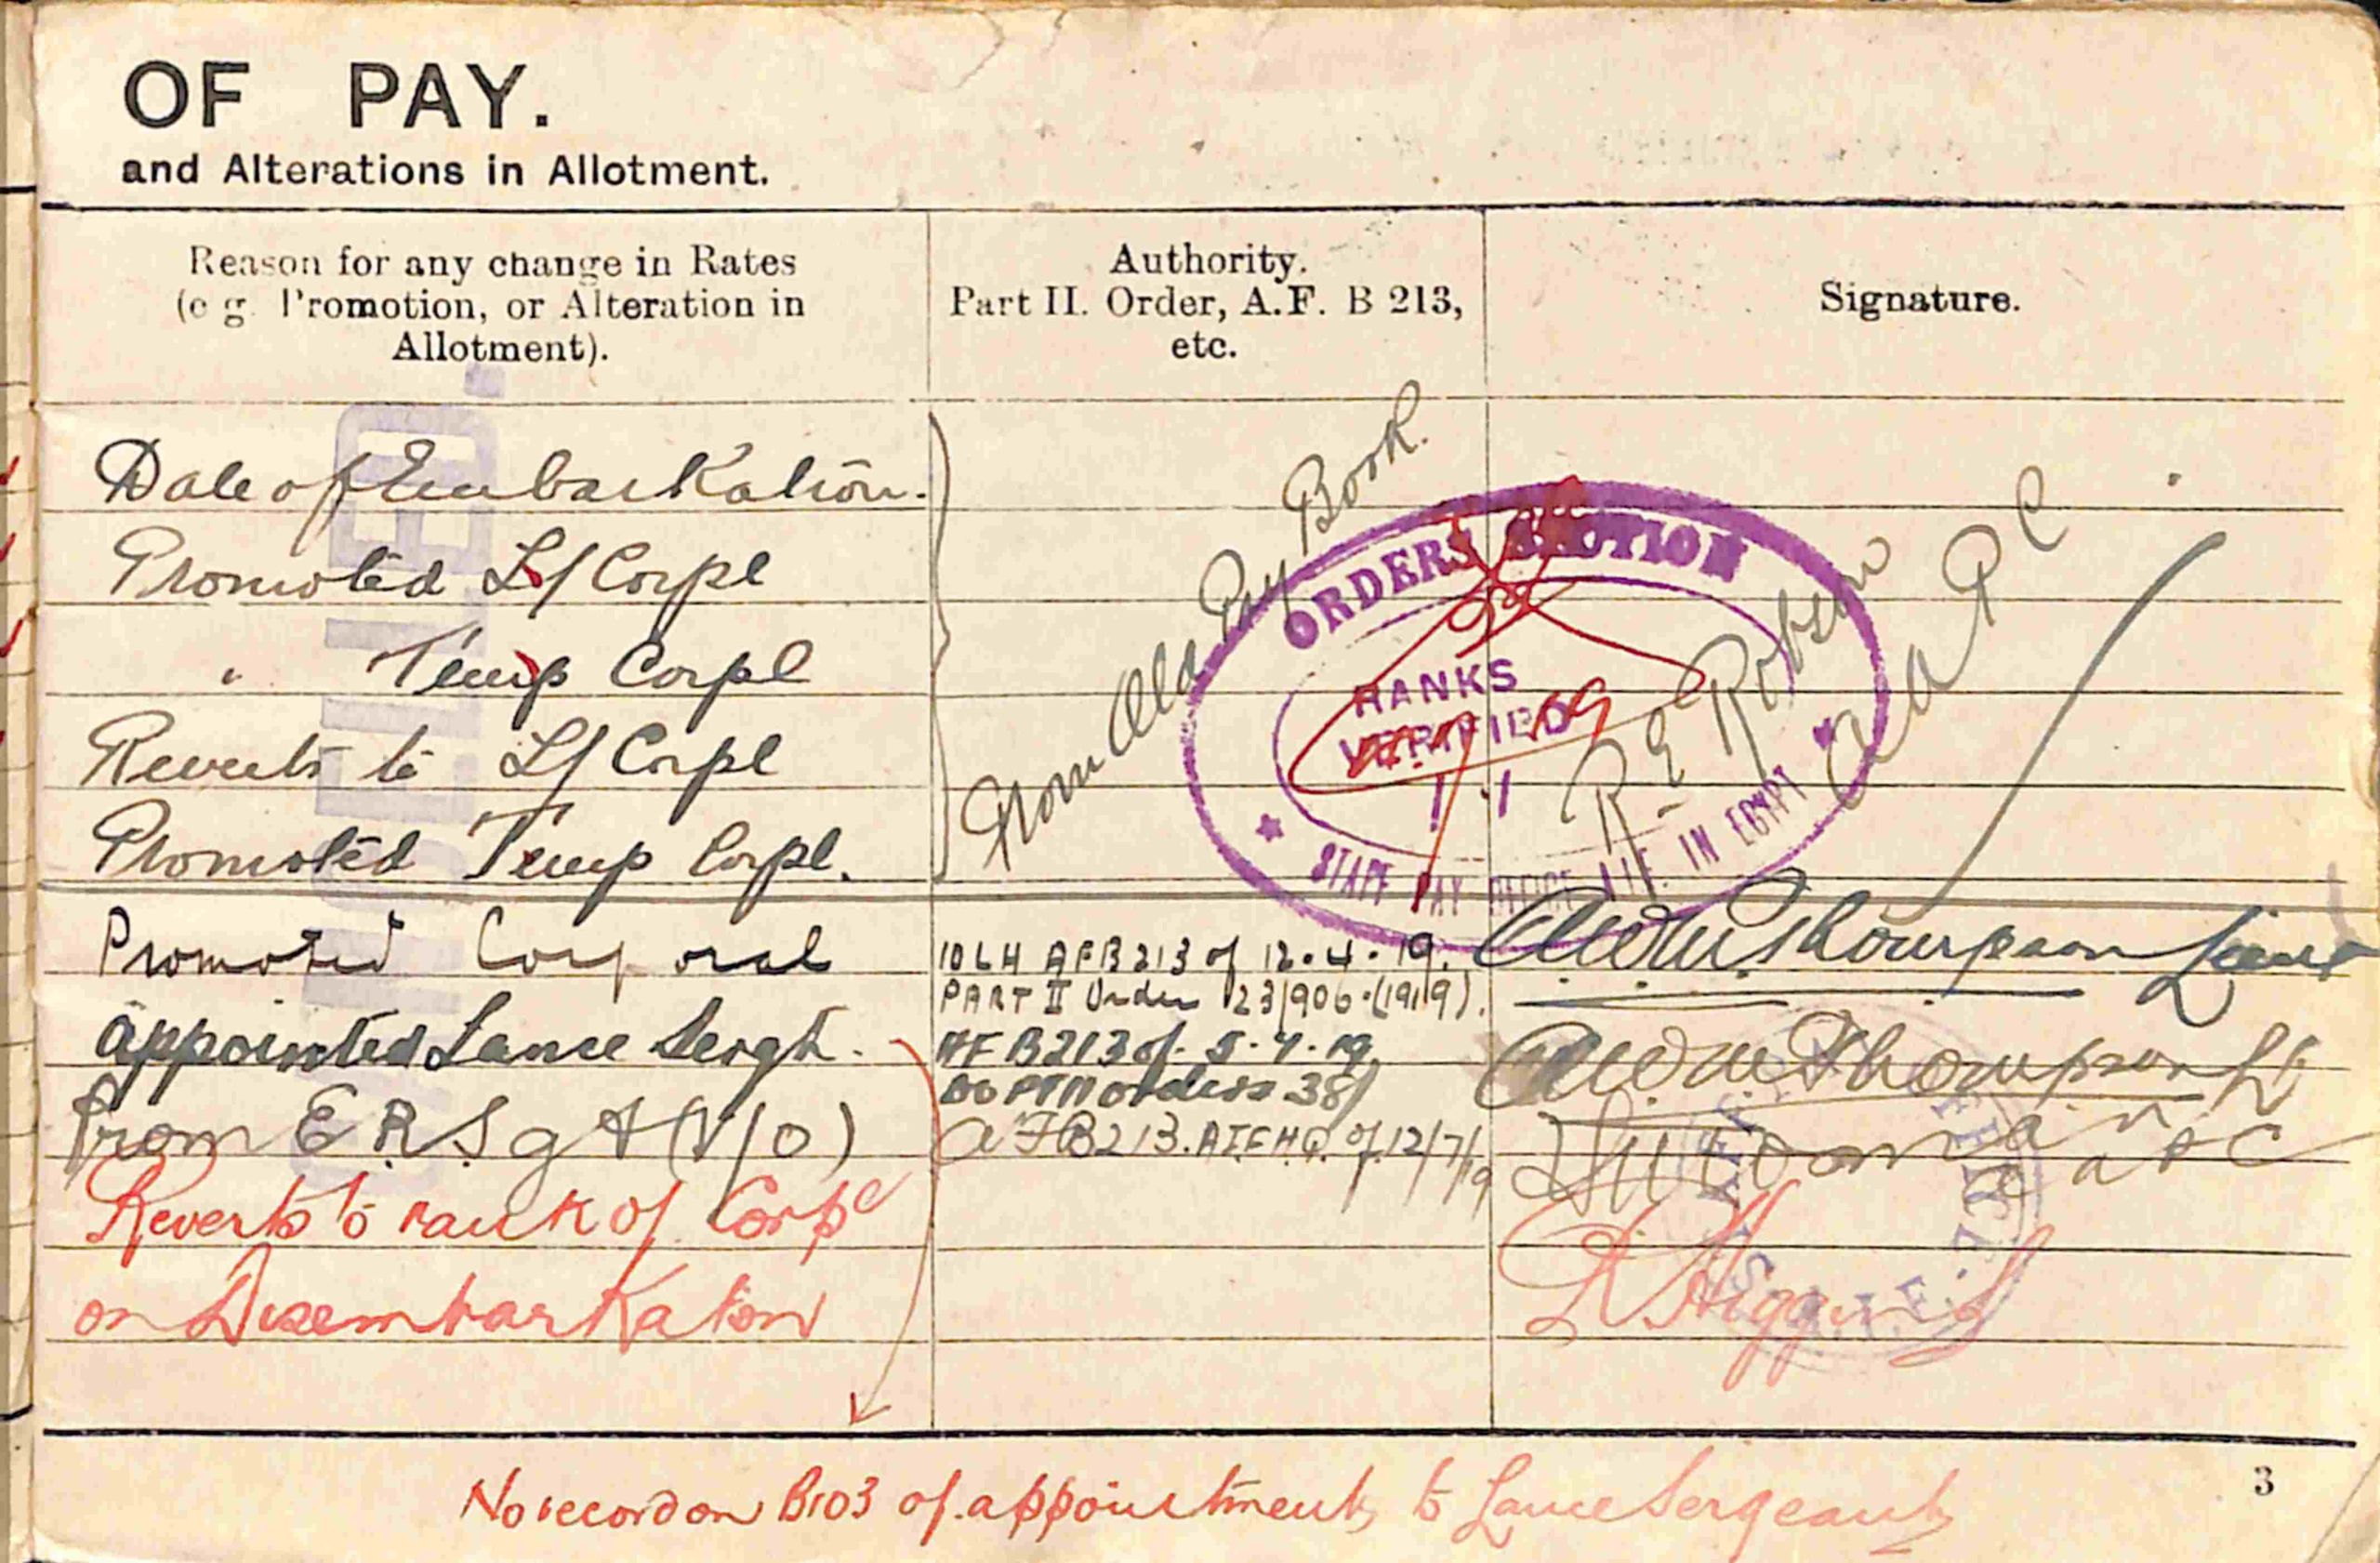 OF PAY.
and Alterations in Allotment.
Reason for any change in Rates
(e g. Promotion, or Alteration in
Allotment).
Authority.
Part II. Order, A.F. B 213,
etc.
Signature.
Date of Embarkation.
Promoted L/Corpl
" Temp Corpl
Reverts to L/Corpl
Promoted Temp Corpl.
From Old Pay Book.
ORDERS SECTION
RANKS
VERIFIED
STAFF PAY OFFICE A.I.F. IN EGYPT
R E Robson
Promoted Corporal
10 LH AFB213 of 12.4.19.
PART II Order 23/906.(1919).
Thompson Lieut
Appointed Lance Sergt.
AF B213 of 5.4.19
orders 38/
Thompson Lt
From E R Sgt (V/O)
AFB213. AIFHQ. of 12/7/19
Reverts to rank of Corpl
on Disembarkation
No record on B103 of appointment to Lance Sergeant
3